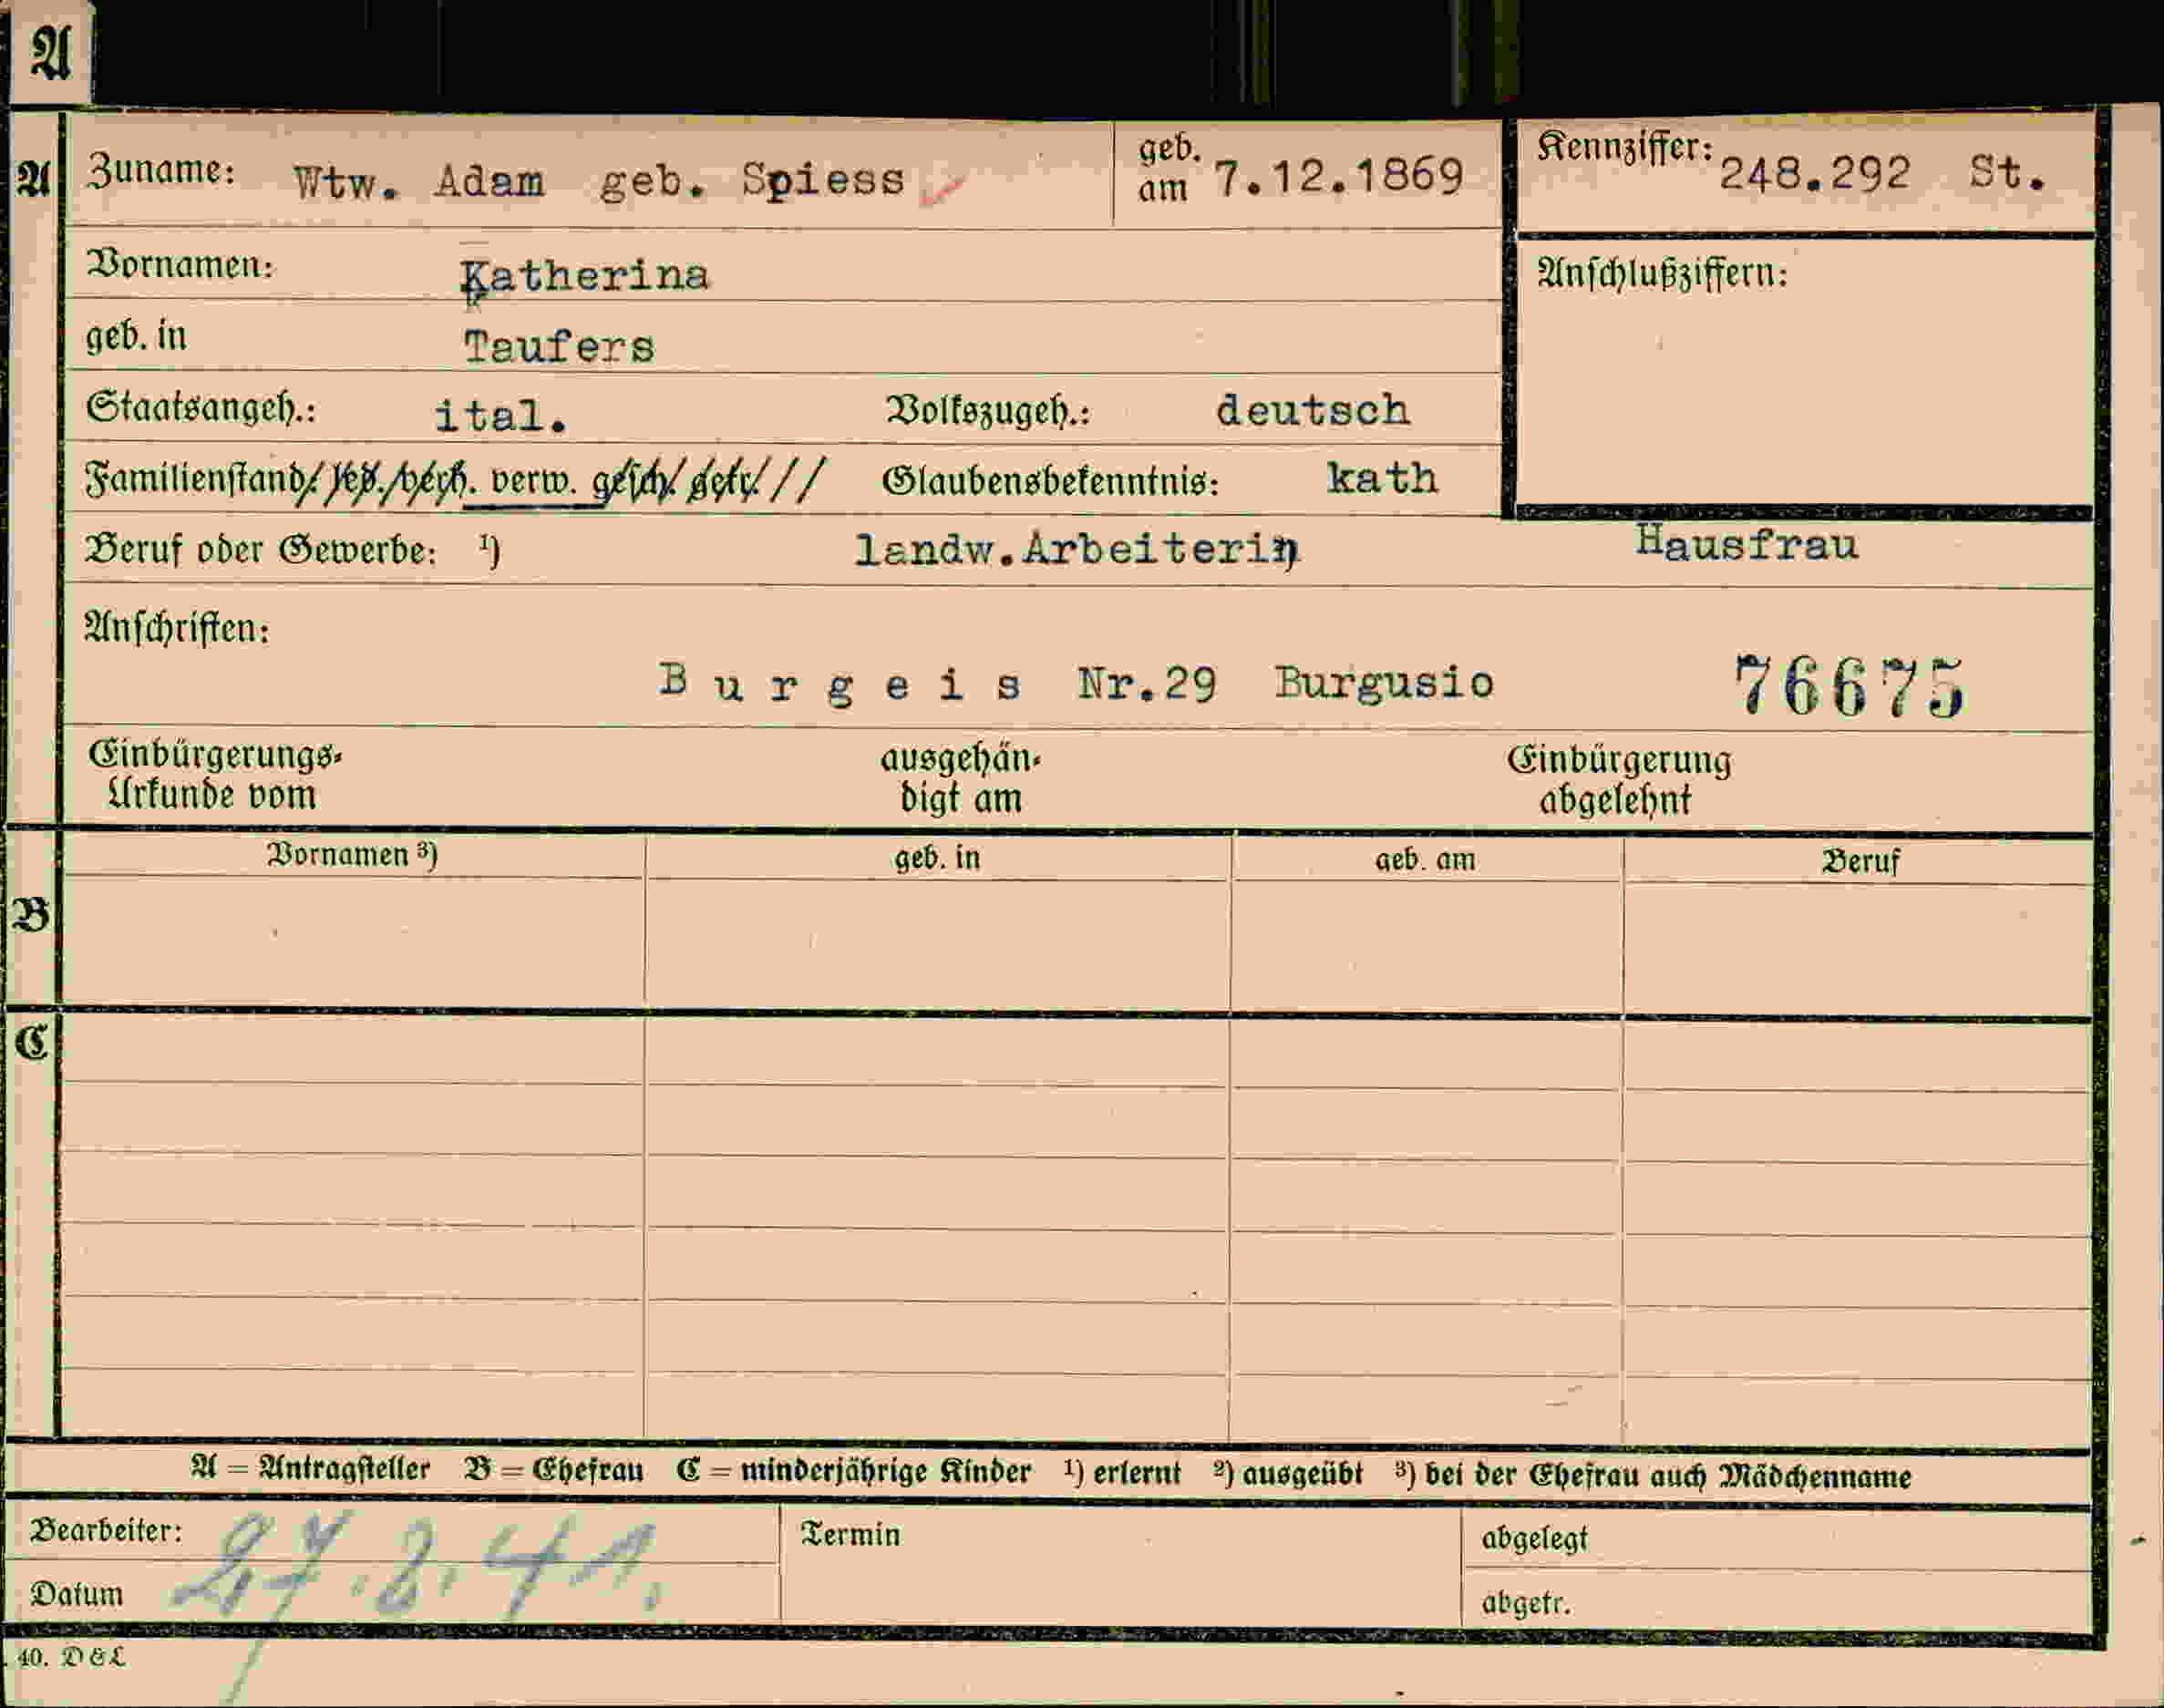 A
A
Zuname: Wtw. Adam geb. Spiess
geb. am 7.12.1869
Kennziffer: 248.292 St.
Vornamen: Katherina
Anschlußziffern:
geb. in Taufers
Staatsangeh.: ital. Volkszugeh.: deutsch
Familienstand: led. verh. verw. gesch. getr. Glaubensbekenntnis: kath
Beruf oder Gewerbe: ¹) landw.Arbeiterin Hausfrau
Anschriften:
B u r g e i s Nr.29 Burgusio 76675
Einbürgerungs-
Urkunde vom
ausgehän-
digt am
Einbürgerung
abgelehnt
B
Vornamen ³) geb. in geb. am Beruf
C
A = Antragsteller B = Ehefrau C = minderjährige Kinder ¹) erlernt ²) ausgeübt ³) bei der Ehefrau auch Mädchenname
Bearbeiter:
Datum 27.2.41.
Termin
abgelegt
abgetr.
40. D & L